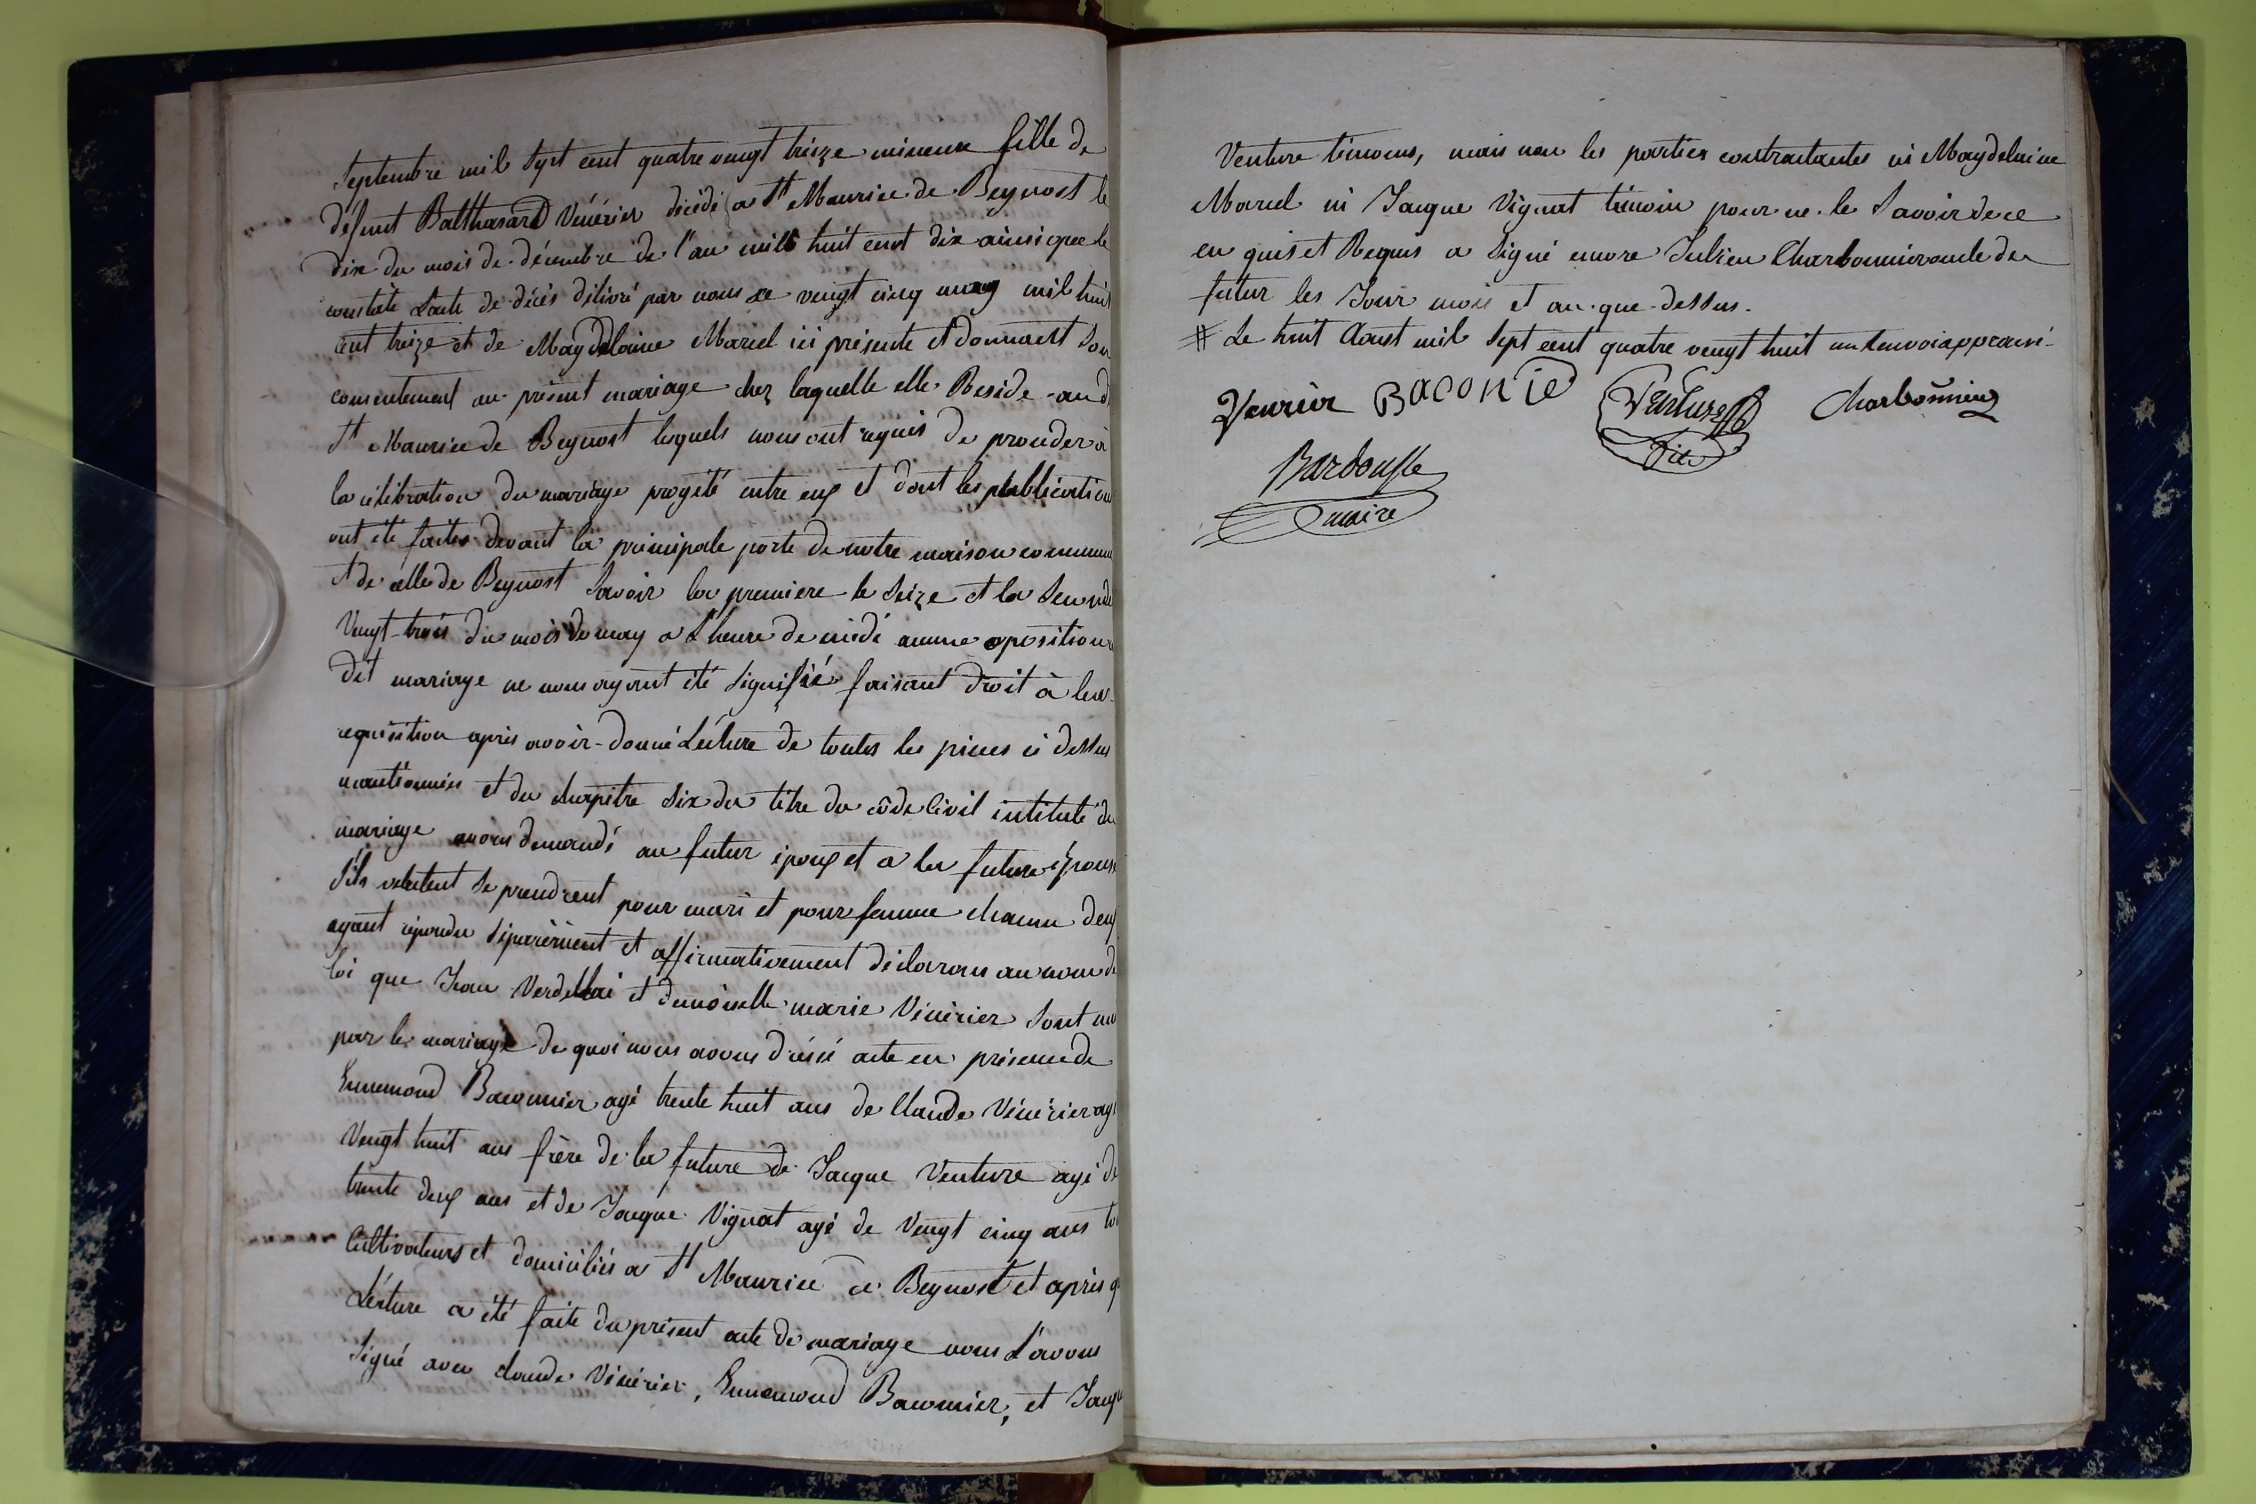 Septembre mil Sept cent quatre vengt treize mineure fille de
défunt Balthasard Vénérier décédé a St Maurice de Beynost le
dix du mois de décembre de l'an mil huit cent dix ainsi que le
constate L'acte de décés délivré par nous le vengt cinq may mil huit
cent treize et de Maydelaine Marcel ici présente et donnant Son
consentement au présent mariage chez laquelle elle Reside aud
St Maurice de Beynost lesquels nous ont requis de proceder à
la célébration du mariage progété entre eux et dont les publication
ont été faites devant la principale porte de notre maison commune
et de celle de Beynost Savoir la premiere le Seize et la Seconde
Vengt-trois du mois de may a L'heure de midi aucune oposition
dit mariage ne nous ayant été Signifiée faisant droit à leur
requisition après avoir donné Lécture de toutes les pieces ci dessus
mantionnées et du chapitre Six du titre du code Civil intitulé du
mariage avons demandé au futur époux et a la future Epouse
S'ils veulent Se prendrent pour mari et pour femme chacun deux
ayant répondu Séparément et affirmativement déclarons au nom de
loi que Jean Verdellai et demoiselle marie Vénérier Sont uni
par le mariage de quoi nous avons dréssé acte en présence de
Ennemond Baconnier agé trente huit ans de Claude Vénérier agé
Vengt huit ans frère de la future de Jacque Venture agé de
trente deux ans et de Jacque Vignat agé de Vengt cinq ans to
Cultivateurs et domiciliés a St Maurice de Beynost et après q
Lécture a été faite du présent acte de mariage nous L'avons
Signé avec claude Vénérier, Ennemond Baconnier, et Jacque
Venture témoins, mais non les parties contractantes ni Maydelaine
Marcel ni Jacque Vignat témoin pour ne le Savoir de ce
en quis et Requis a Signé encore Julien Charbonnier oncle du
futur les Jour mois et an que dessus.
# Le huit Aoust mil Sept cent quatre vengt huit un Renvoi approuvé
Venerier Baconié Venture charbonnier
fils
Bardousse
maire